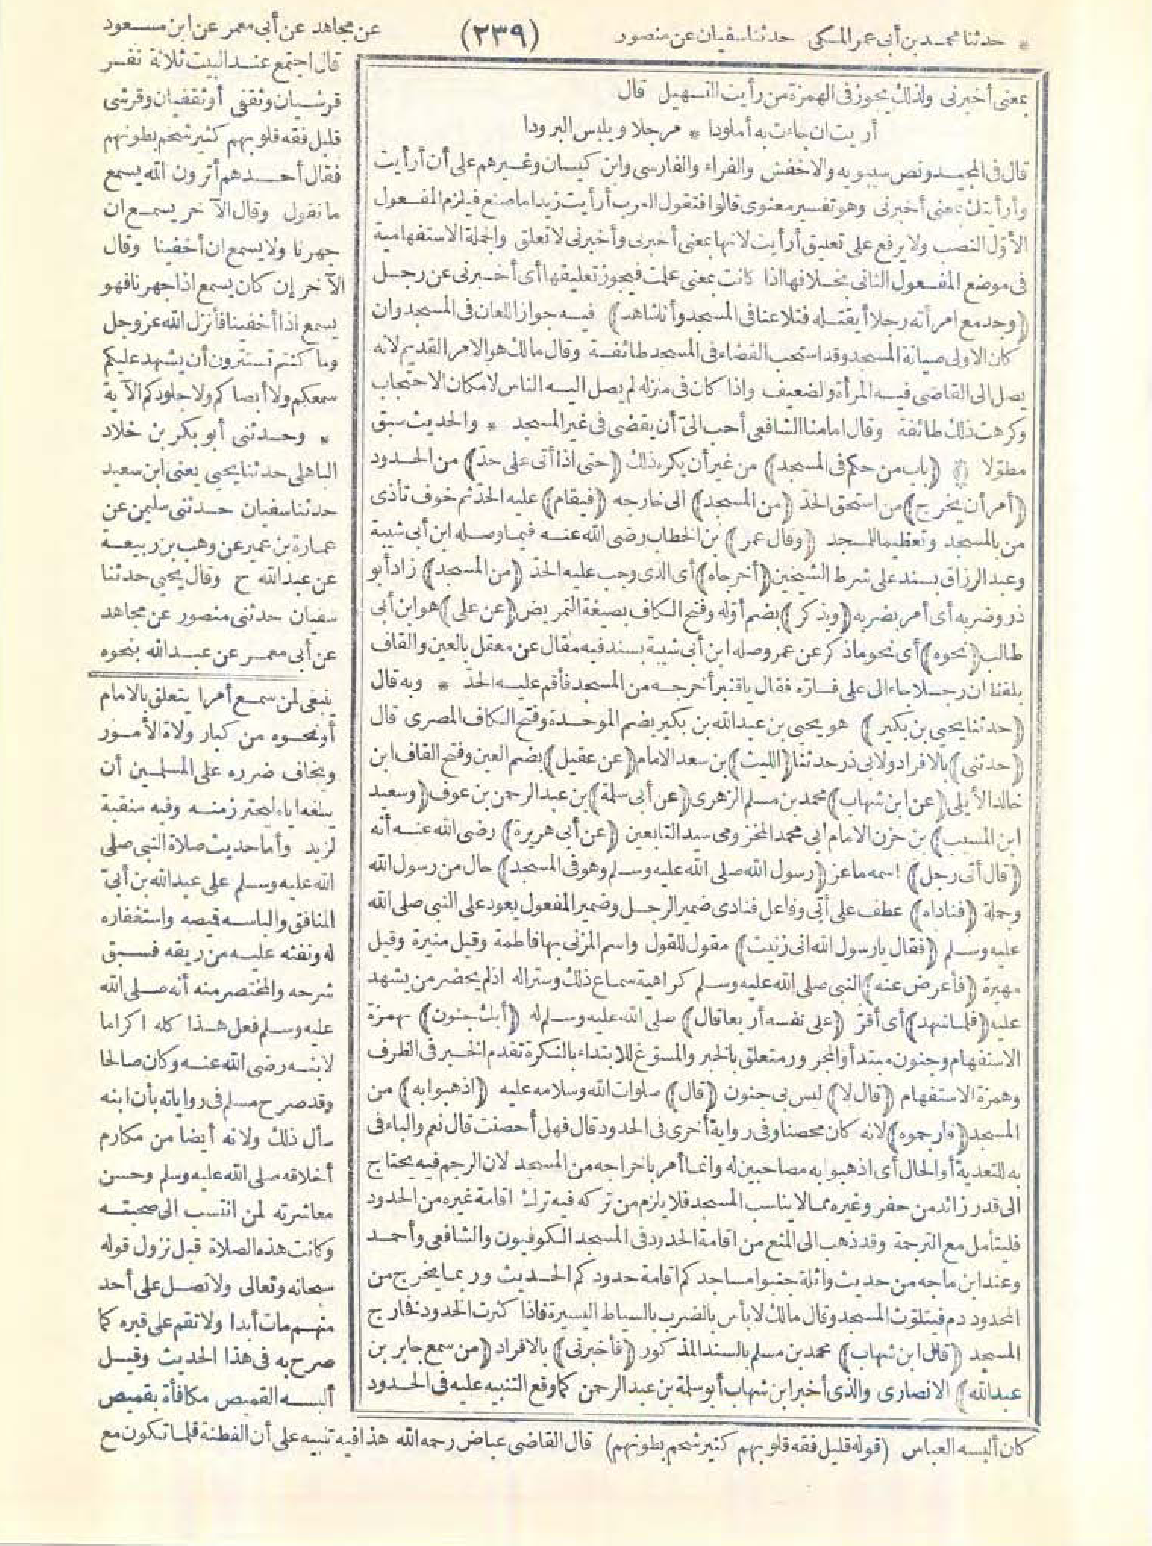 * حدثنا محمد بن أبي عمر المكي حدثنا سفيان عن منصور
(٢٣٩)
عن مجاهد عن أبي معمر عن ابن مسعود
بمعنى أخبرني ولذلك يجوز في الهمزة من رأيت التسهيل قال
أريت ان جاءت به أملودا * مرجلا ويلبس البرودا
قال في المجيد ونص سيبويه والاخفش والفراء والفارسي وابن كيسان وغيرهم على أن أرأيت
وأرأيتك بمعنى أخبرني وهو تفسير معنوي قالوا فتقول العرب أرأيت زيدا ما صنع فيلزم المفعول
الأول النصب ولا يرفع على تعليق أرأيت لانها بمعنى أخبرني وأخبرني لا تعلق والجملة الاستفهامية
في موضع المفعول الثاني بخلافها اذا كانت بمعنى علمت فيجوز تعليقها أى أخبرني عن رجل
(وجد مع امرأته رجلا أيقتله فتلاعنا في المسجد وأنا شاهد) فيه جواز اللعان في المسجد وان
كان الاولى صيانة المسجد وقد استحب القضاء في المسجد طائفة وقال مالك هو الامر القديم لانه
يصل الى القاضي فيه المرأة والضعيف واذا كان في منزله لم يصل اليه الناس لامكان الاحتجاب
وكرهت ذلك طائفة وقال امامنا الشافعي أحب الىّ أن يقضى في غير المسجد * والحديث سبق
مطوّلا (باب من حكم في المسجد) من غير أن يكره ذلك (حتى اذا أتى على حدّ) من الحدود
(أمر أن يخرج) من استحق الحدّ (من المسجد) الى خارجه (فيقام) عليه الحدّ ثم خوف تأذى
من بالمسجد وتعظيما للمسجد (وقال عمر) بن الخطاب رضى الله عنه فيما وصله ابن أبي شيبة
وعبد الرزاق بسند على شرط الشيخين (أخرجاه) أى الذى وجب عليه الحدّ (من المسجد) زاد أبو
ذر وضربه أى أمر بضربه (ويذكر) بضم أوله وفتح الكاف بصيغة التمريض (عن على) هو ابن أبى
طالب (نحوه) أى نحو ما ذكر عن عمر وصله ابن أبي شيبة بسند فيه مقال عن معقل بالعين والقاف
بلفظ ان رجلا جاء الى على فساره فقال يا قنبر أخرجه من المسجد فأقم عليه الحدّ * وبه قال
(حدثنا يحيى بن بكير) هو يحيى بن عبد الله بن بكير بضم الموحدة وفتح الكاف المصرى قال
(حدثنى) بالافراد ولابى ذر حدثنا (الليث) بن سعد الامام (عن عقيل) بضم العين وفتح القاف ابن
خالد الأيلى (عن ابن شهاب) محمد بن مسلم الزهرى (عن أبى سلمة) بن عبد الرحمن بن عوف (وسعيد
ابن المسيب) بن حزن الامام أبي محمد المخزومى سيد التابعين (عن أبى هريرة) رضى الله عنه أنه
(قال أتى رجل) اسمه ماعز (رسول الله صلى الله عليه وسلم وهو فى المسجد) حال من رسول الله
وجملة (فناداه) عطف على أتى وفاعل فنادى ضمير الرجل وضمير المفعول يعود على النبى صلى الله
عليه وسلم (فقال يا رسول الله انى زنيت) مقول للقول واسم المزنى بها فاطمة وقيل منيرة وقيل
مهيرة (فأعرض عنه) النبى صلى الله عليه وسلم كراهية سماع ذلك وسترا له اذ لم يحضر من يشهد
عليه (فلما شهد) أى أقرّ (على نفسه أربعا قال) صلى الله عليه وسلم له (أبك جنون) بهمزة
الاستفهام وجنون مبتدأ والمجرور متعلق بالخبر والمسوّغ للابتداء بالنكرة تقدم الخبر فى الظرف
وهمزة الاستفهام (قال لا) ليس بى جنون (قال) صلوات الله وسلامه عليه (اذهبوا به) من
المسجد (فارجموه) لانه كان محصنا وفى رواية أخرى فى الحدود قال فهل أحصنت قال نعم والباء فى
به للتعدية أو الحال أى اذهبوا به مصاحبين له وانما أمر باخراجه من المسجد لان الرجم فيه يحتاج
الى قدر زائد من حفر وغيره مما لا يناسب المسجد فلا يلزم من تركه فيه ترك اقامة غيره من الحدود
فليتأمل مع الترجمة وقد ذهب الى المنع من اقامة الحدود فى المسجد الكوفيون والشافعى وأحمد
وعند ابن ماجه من حديث واثلة جنبوا مساجدكم اقامة حدودكم الحديث وربما يخرج من
المحدود دم فيتلوث المسجد وقال مالك لا بأس بالضرب بالسياط اليسيرة فاذا كثرت الحدود فخارج
المسجد (قال ابن شهاب) محمد بن مسلم بالسند المذكور (فأخبرنى) بالافراد (من سمع جابر بن
عبد الله) الانصارى والذى أخبر ابن شهاب أبو سلمة بن عبد الرحمن كما وقع التنبيه عليه فى الحدود
قال اجتمع عند البيت ثلاثة نفر
قرشيان وثقفى أو ثقفيان وقرشى
قليل فقه قلوبهم كثير شحم بطونهم
فقال أحدهم أترون الله يسمع
ما نقول وقال الآخر يسمع ان
جهرنا ولا يسمع ان أخفينا وقال
الآخر إن كان يسمع اذا جهرنا فهو
يسمع اذا أخفينا فأنزل الله عز وجل
وما كنتم تستترون أن يشهد عليكم
سمعكم ولا أبصاركم ولا جلودكم الآية
* وحدثنى أبو بكر بن خلاد
الباهلى حدثنا يحيى يعنى ابن سعيد
حدثنا سفيان حدثنى سليمن عن
عمارة بن عمير عن وهب بن ربيعة
عن عبد الله ح وقال يحيى حدثنا
سفيان حدثنى منصور عن مجاهد
عن أبى معمر عن عبد الله بنحوه
ينبغى لمن سمع أمرا يتعلق بالامام
أو نحوه من كبار ولاة الأمور
ويخاف ضرره على المسلمين أن
يبلغه اياه ليحترز منه وفيه منقبة
لزيد وأما حديث صلاة النبى صلى
الله عليه وسلم على عبد الله بن أبىّ
المنافق والباسه قميصه واستغفاره
له ونفثه عليه من ريقه فسبق
شرحه والمختصر منه أنه صلى الله
عليه وسلم فعل هذا كله اكراما
لابنه رضى الله عنه وكان صالحا
وقد صرح مسلم فى رواياته بأن ابنه
سأل ذلك ولانه أيضا من مكارم
أخلاقه صلى الله عليه وسلم وحسن
معاشرته لمن انتسب الى صحبته
وكانت هذه الصلاة قبل نزول قوله
سبحانه وتعالى ولا تصل على أحد
منهم مات أبدا ولا تقم على قبره كما
صرح به فى هذا الحديث وقيل
ألبسه القميص مكافأة بقميص
كان ألبسه العباس (قوله قليل فقه قلوبهم كثير شحم بطونهم) قال القاضى عياض رحمه الله هذا فيه تنبيه على أن الفطنة قلما تكون مع